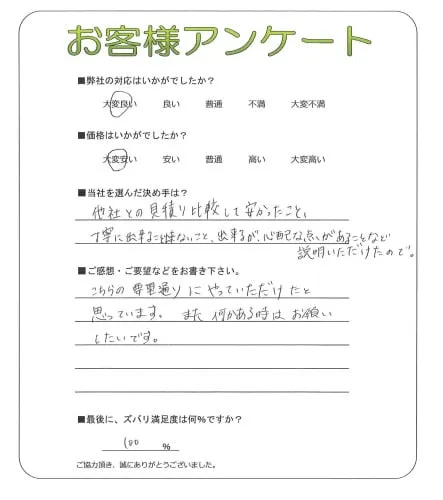 お客様アンケート
■弊社の対応はいかがでしたか?
大変良い 良い 普通 不満 大変不満
■価格はいかがでしたか?
大変安い 安い 普通 高い 大変高い
■当社を選んだ決め手は?
他社との見積り比較して安かったこと、
丁寧に出来る出来ないこと、出来るが、心配な点があることなど
説明いただけたので。
■ご感想・ご要望などをお書き下さい。
こちらの要望通りにやっていただけたと
思っています。また何かある時はお願い
したいです。
■最後に、ズバリ満足度は何%ですか?
100 %
ご協力頂き、誠にありがとうございました。